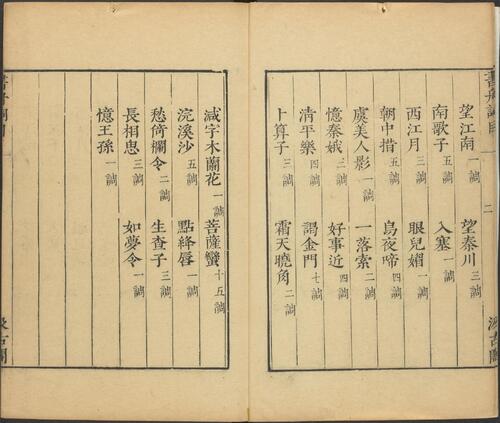 書舟詞目
二
汲古閣
望江南一調 望秦川三調
南歌子五調 入塞一調
西江月三調 眼兒媚一調
朝中措五調 烏夜啼四調
虞美人影一調 一落索二調
憶秦娥三調 好事近四調
清平樂四調 謁金門七調
卜算子三調 霜天曉角二調
减字木蘭花一調 菩薩蠻十五調
浣溪沙五調 點絳唇一調
愁倚欄令二調 生查子三調
長相思三調 如夢令一調
憶王孫一調
書舟詞目
汲古閣